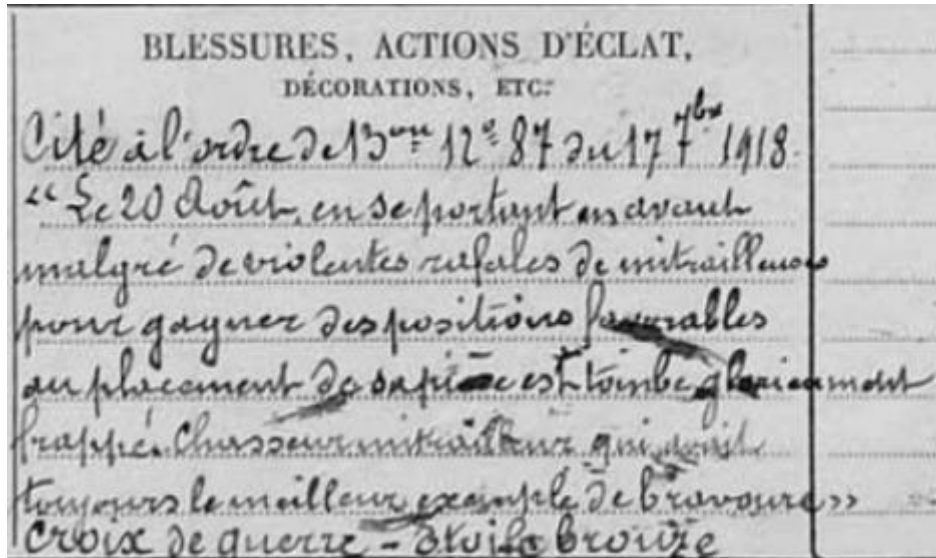 BLESSURES, ACTIONS D'ÉCLAT,
DÉCORATIONS, ETC.
Cité à l'ordre de 13ème N° 87 du 17 7bre 1918.
"Le 20 Août, en se portant en avant
malgré de violentes rafales de mitrailleuses
pour gagner des positions favorables
au placement de sa pièce est tombé glorieusement
frappé. Chasseur mitrailleur qui avait
toujours le meilleur exemple de bravoure"
Croix de guerre - Etoile bronze